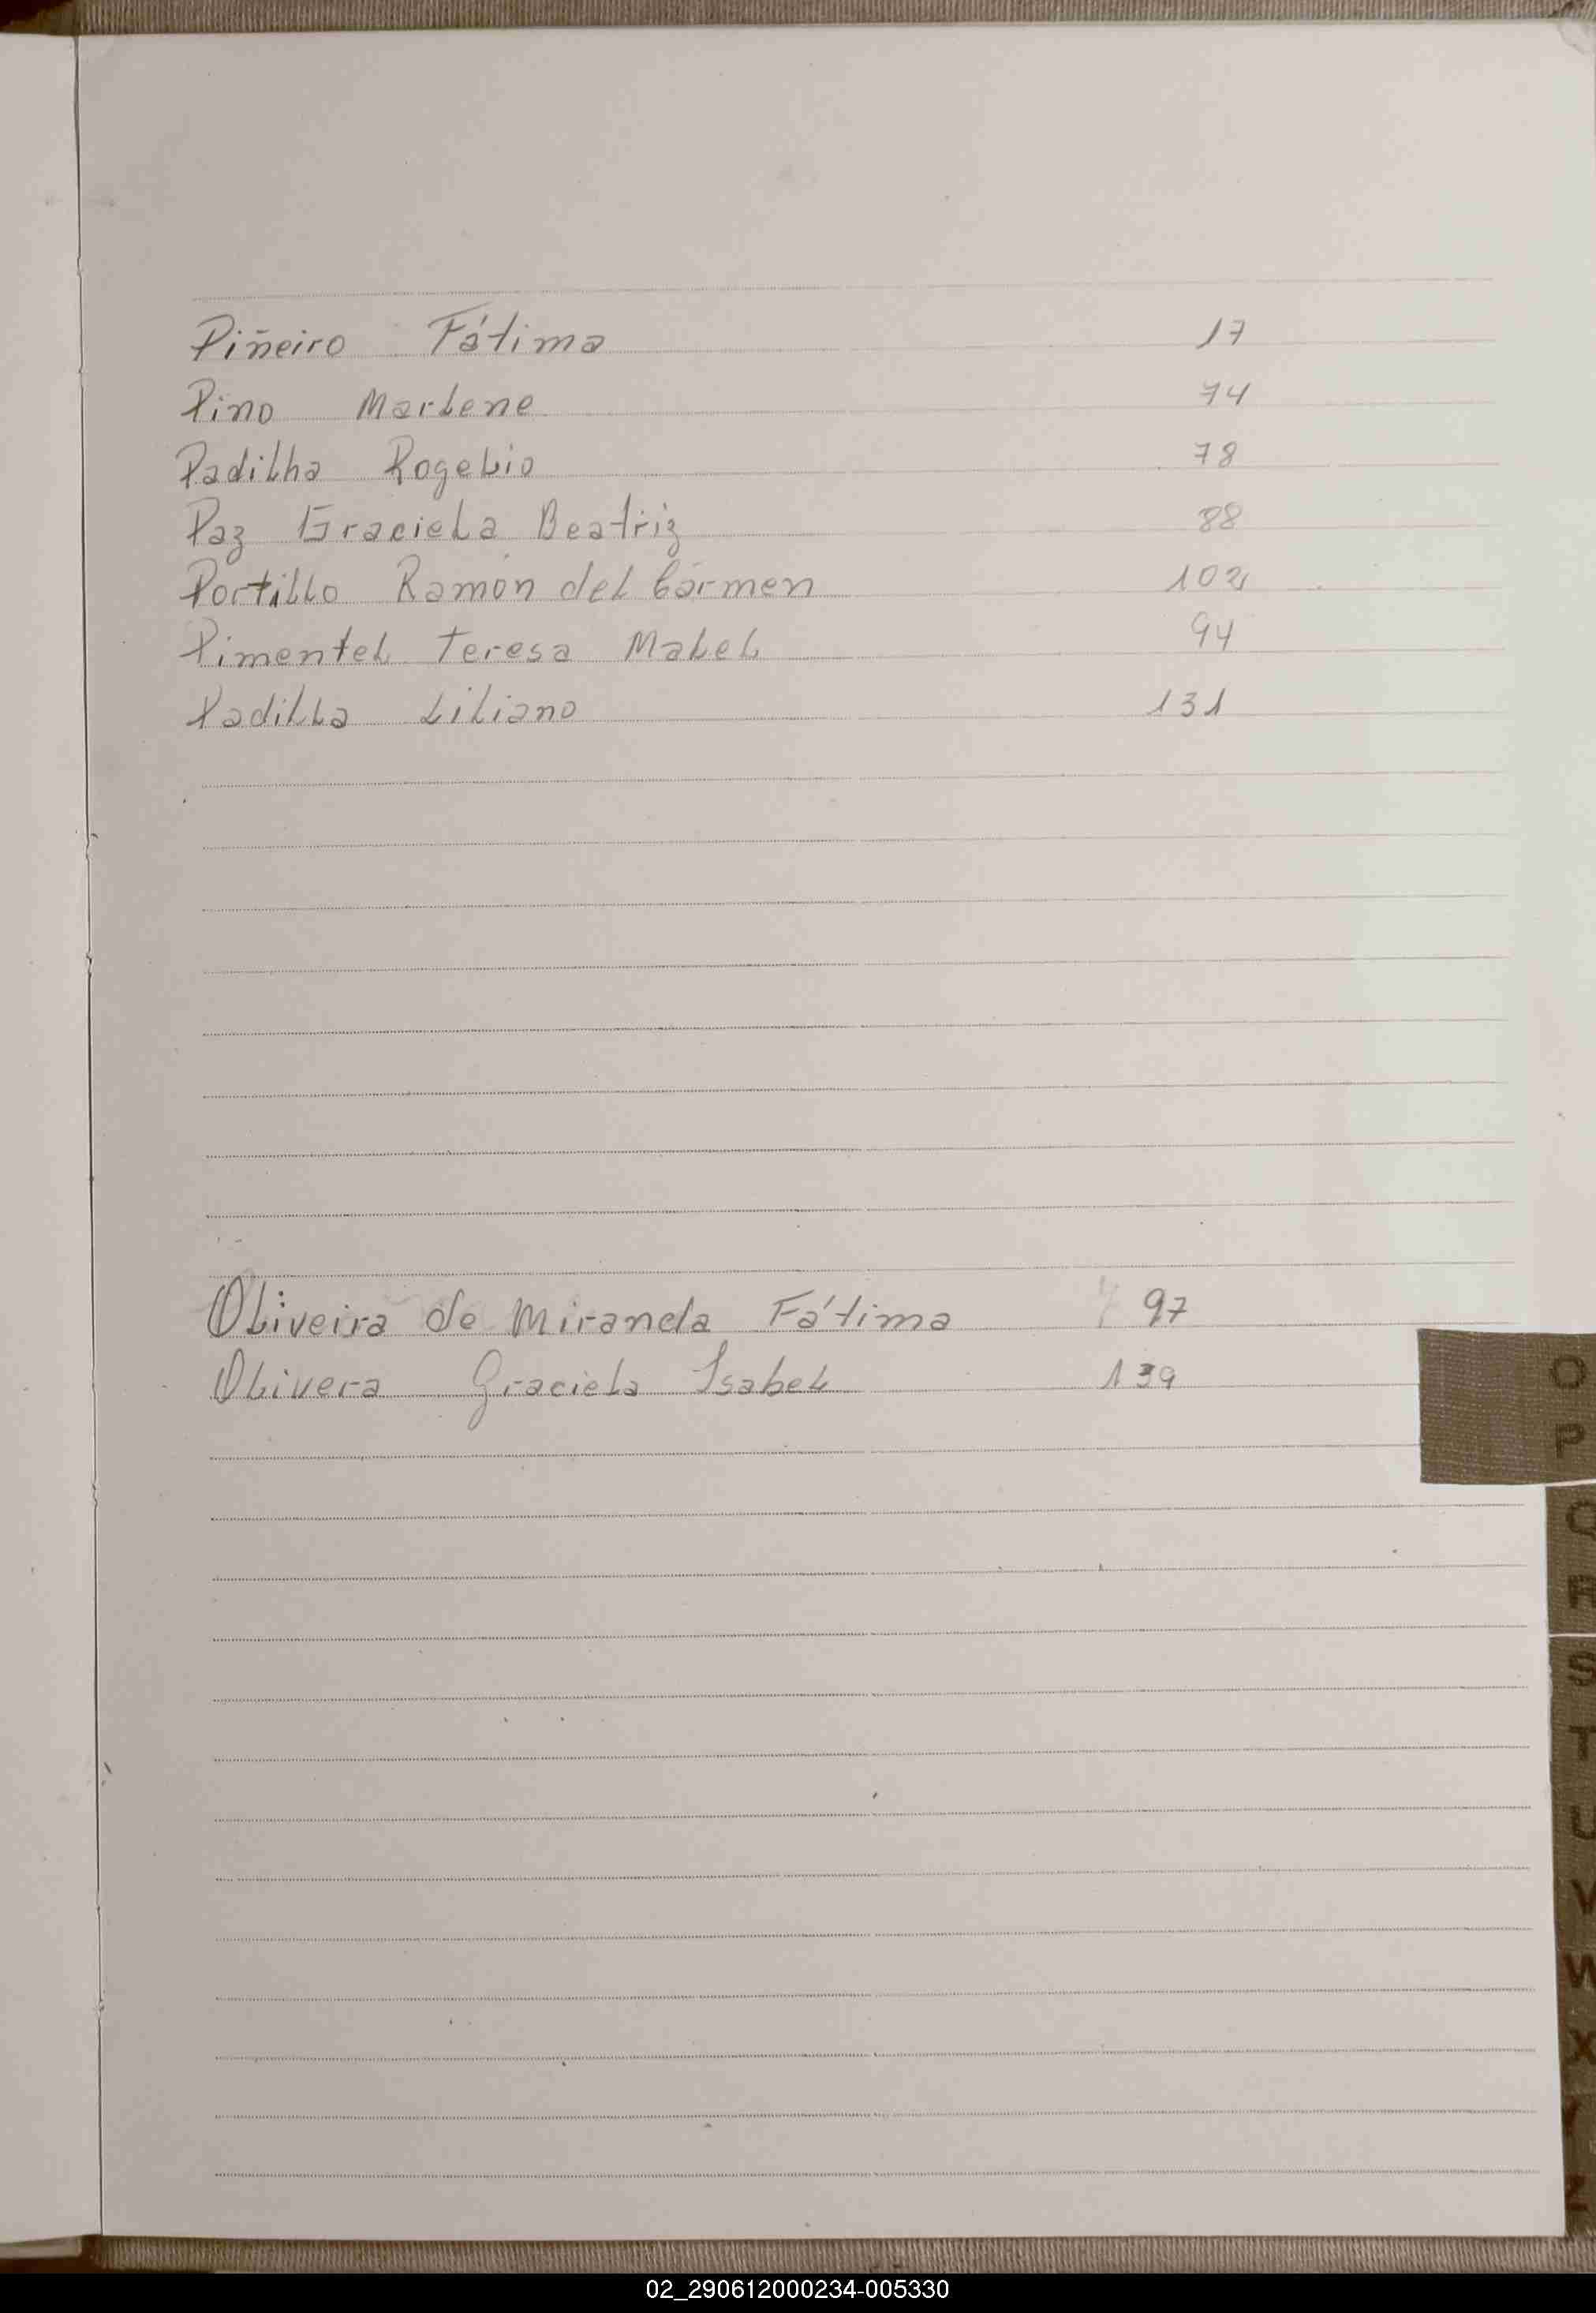 Piñeiro Fátima 17
Pino Marlene 74
Padilha Rogelio 78
Paz Graciela Beatriz 88
Portillo Ramón del Cármen 102
Pimentel Teresa Mabel 94
Padilla Liliana 131
Oliveira de Miranda Fátima 97
Olivera Graciela Isabel 139
O
P
Q
R
S
T
U
V
W
X
Y
Z
02_290612000234-005330